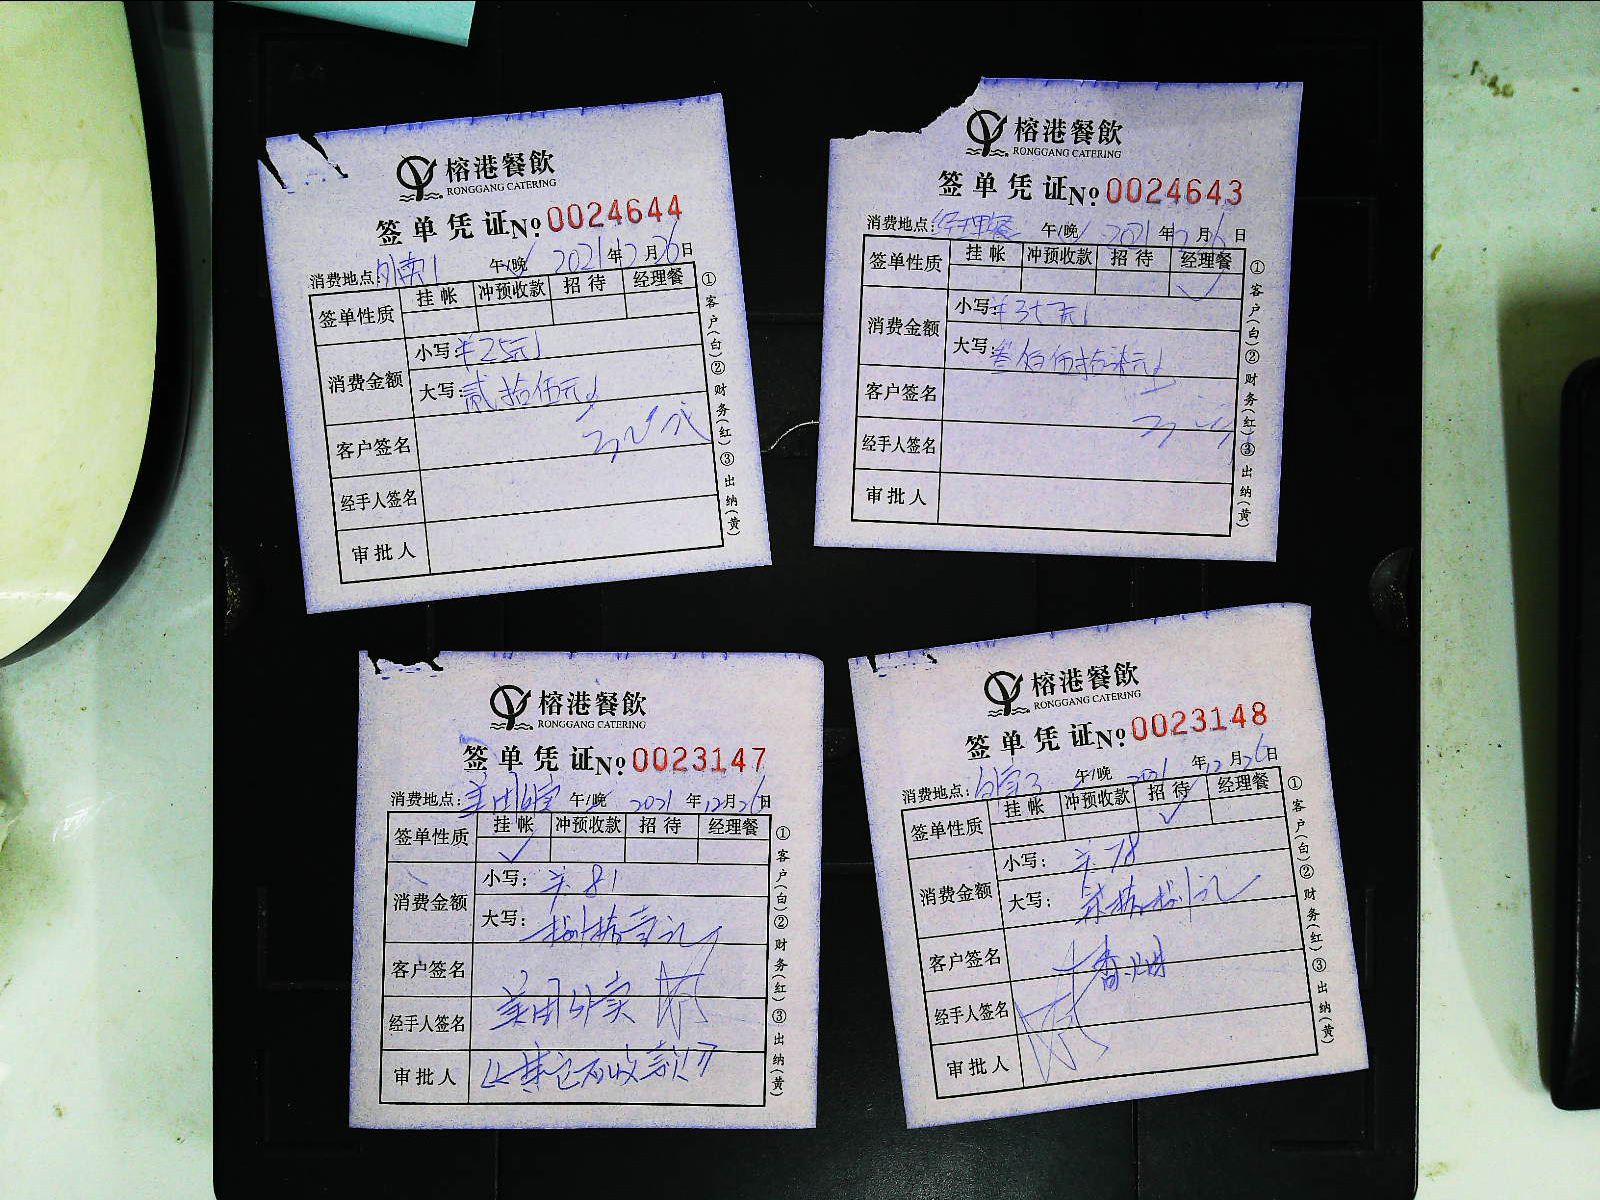 榕港餐飲
RONGGANG CATERING
签单凭证№0024644
消费地点:外卖1 午/晚 2021年12月26日
签单性质 挂帐 冲预收款 招待 经理餐
消费金额 小写:¥25元
大写:贰拾伍元
客户签名
经手人签名
审批人
①客户(白)②财务(红)③出纳(黄)
榕港餐飲
RONGGANG CATERING
签单凭证№0024643
消费地点:经理餐 午/晚 2021年12月26日
签单性质 挂帐 冲预收款 招待 经理餐
消费金额 小写:¥357元
大写:叁佰伍拾柒元
客户签名
经手人签名
审批人
①客户(白)②财务(红)③出纳(黄)
榕港餐飲
RONGGANG CATERING
签单凭证№0023147
消费地点:美团外卖 午/晚 2021年12月26日
签单性质 挂帐 冲预收款 招待 经理餐
消费金额 小写:¥81
大写:捌拾壹元
客户签名
经手人签名 美团外卖
审批人
①客户(白)②财务(红)③出纳(黄)
榕港餐飲
RONGGANG CATERING
签单凭证№0023148
消费地点: 午/晚 2021年12月26日
签单性质 挂帐 冲预收款 招待 经理餐
消费金额 小写:¥78
大写:柒拾捌元
客户签名
经手人签名
审批人
①客户(白)②财务(红)③出纳(黄)